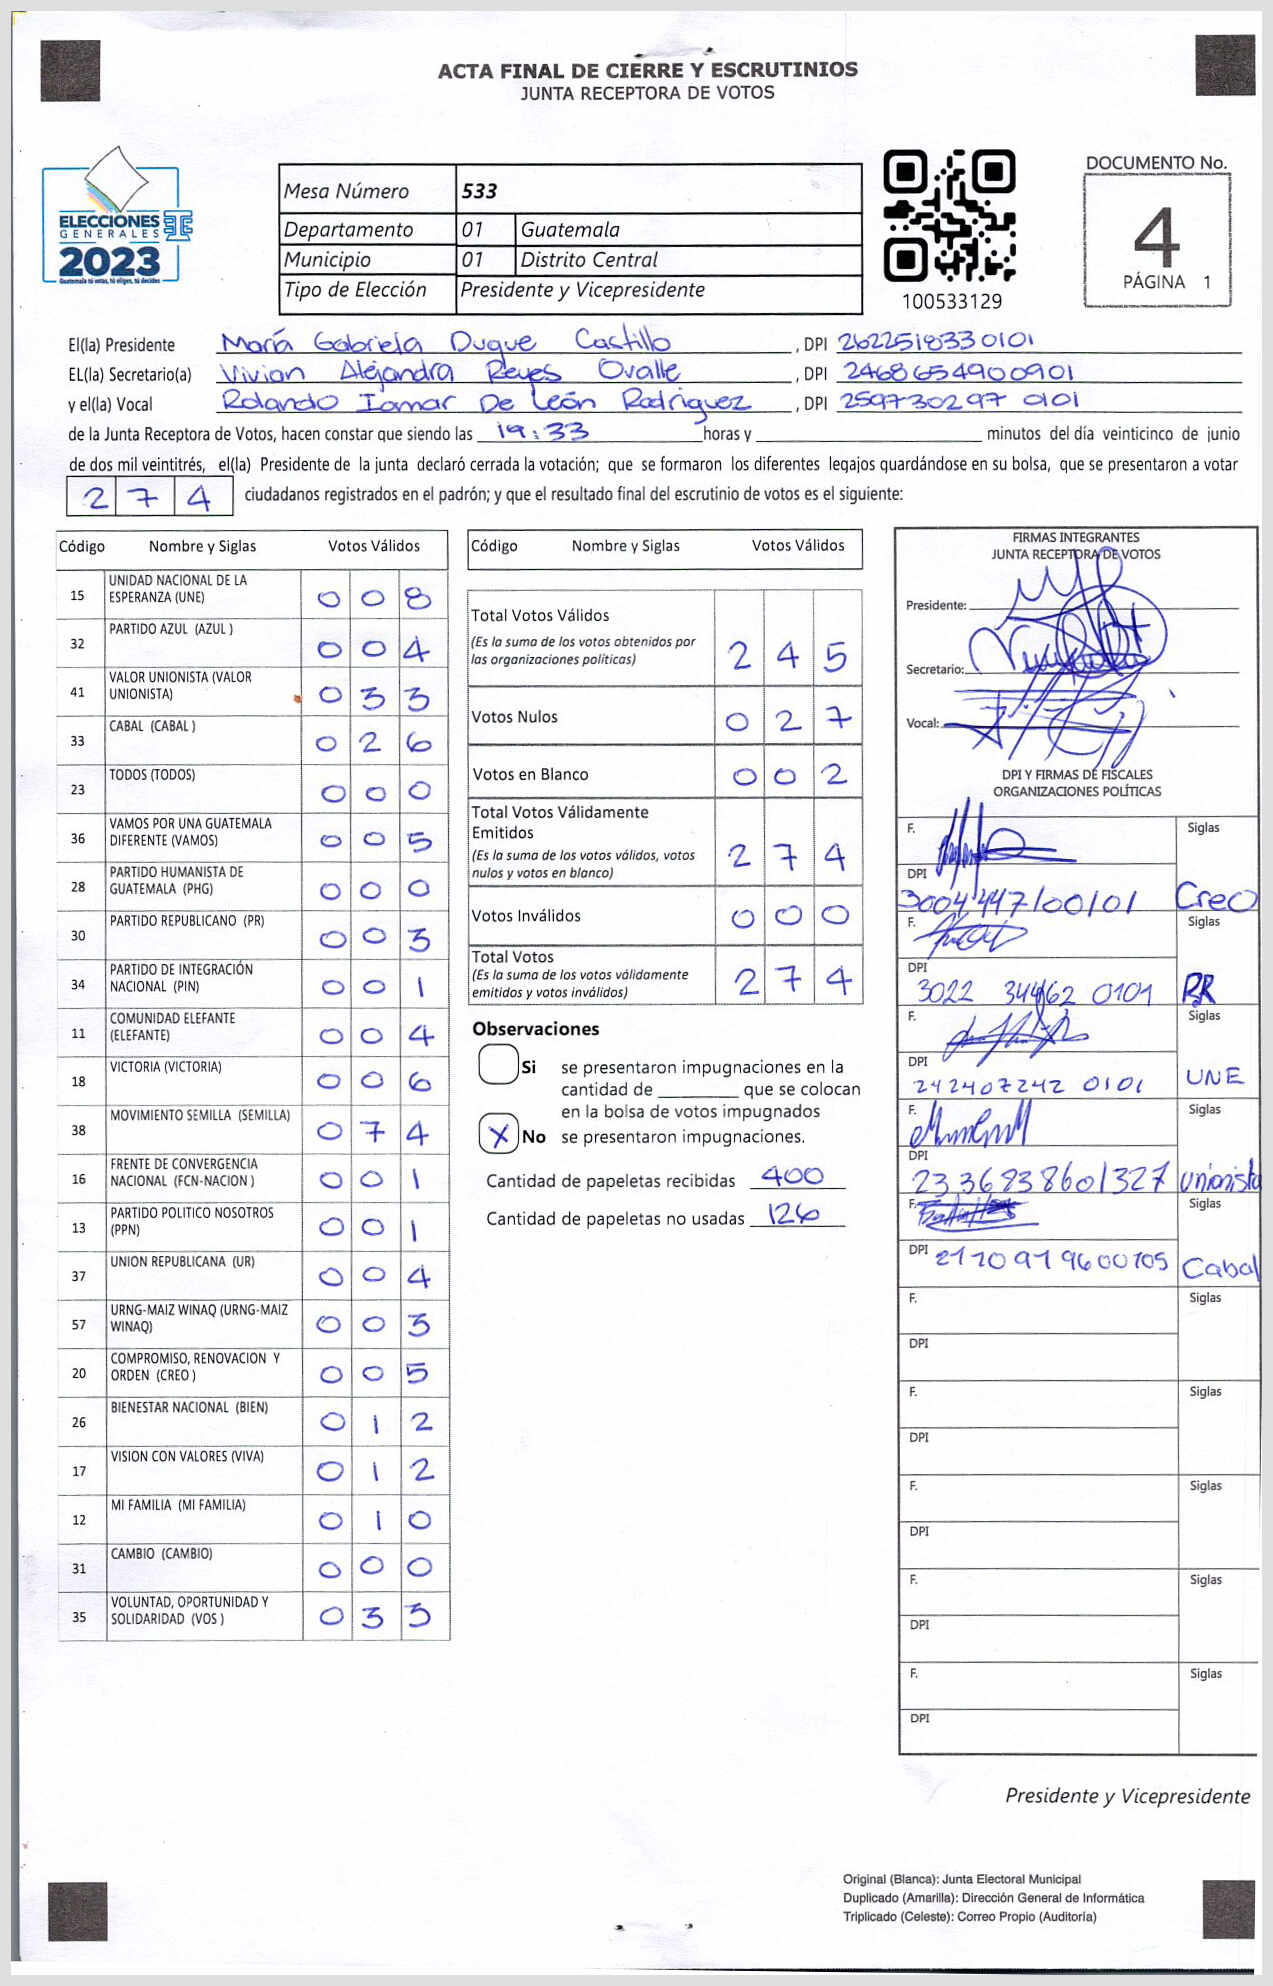 ACTA FINAL DE CIERRE Y ESCRUTINIOS
JUNTA RECEPTORA DE VOTOS
ELECCIONES
GENERALES
2023
Guatemala tú votas, tú eliges, tú decides
Mesa Número 533
Departamento 01 Guatemala
Municipio 01 Distrito Central
Tipo de Elección Presidente y Vicepresidente
100533129
DOCUMENTO No.
4
PÁGINA 1
El(la) Presidente María Gabriela Duque Castillo, DPI 2622518330101
EL(la) Secretario(a) Vivian Alejandra Reyes Ovalle, DPI 2468654900901
y el(la) Vocal Rolando Iomar De León Rodriguez, DPI 259730297 0101
de la Junta Receptora de Votos, hacen constar que siendo las 19:33 horas y minutos del día veinticinco de junio
de dos mil veintitrés, el(la) Presidente de la junta declaró cerrada la votación; que se formaron los diferentes legajos guardándose en su bolsa, que se presentaron a votar
2 7 4 ciudadanos registrados en el padrón; y que el resultado final del escrutinio de votos es el siguiente:
Código Nombre y Siglas Votos Válidos
15 UNIDAD NACIONAL DE LA ESPERANZA (UNE) 0 0 8
32 PARTIDO AZUL (AZUL ) 0 0 4
41 VALOR UNIONISTA (VALOR UNIONISTA) 0 3 3
33 CABAL (CABAL ) 0 2 6
23 TODOS (TODOS) 0 0 0
36 VAMOS POR UNA GUATEMALA DIFERENTE (VAMOS) 0 0 5
28 PARTIDO HUMANISTA DE GUATEMALA (PHG) 0 0 0
30 PARTIDO REPUBLICANO (PR) 0 0 3
34 PARTIDO DE INTEGRACIÓN NACIONAL (PIN) 0 0 1
11 COMUNIDAD ELEFANTE (ELEFANTE) 0 0 4
18 VICTORIA (VICTORIA) 0 0 6
38 MOVIMIENTO SEMILLA (SEMILLA) 0 7 4
16 FRENTE DE CONVERGENCIA NACIONAL (FCN-NACION ) 0 0 1
13 PARTIDO POLITICO NOSOTROS (PPN) 0 0 1
37 UNION REPUBLICANA (UR) 0 0 4
57 URNG-MAIZ WINAQ (URNG-MAIZ WINAQ) 0 0 3
20 COMPROMISO, RENOVACION Y ORDEN (CREO ) 0 0 5
26 BIENESTAR NACIONAL (BIEN) 0 1 2
17 VISION CON VALORES (VIVA) 0 1 2
12 MI FAMILIA (MI FAMILIA) 0 1 0
31 CAMBIO (CAMBIO) 0 0 0
35 VOLUNTAD, OPORTUNIDAD Y SOLIDARIDAD (VOS ) 0 3 3
Código Nombre y Siglas Votos Válidos
Total Votos Válidos
(Es la suma de los votos obtenidos por
las organizaciones políticas) 2 4 5
Votos Nulos 0 2 7
Votos en Blanco 0 0 2
Total Votos Válidamente
Emitidos
(Es la suma de los votos válidos, votos
nulos y votos en blanco) 2 7 4
Votos Inválidos 0 0 0
Total Votos
(Es la suma de los votos válidamente
emitidos y votos inválidos) 2 7 4
Observaciones
Si se presentaron impugnaciones en la
cantidad de ________ que se colocan
en la bolsa de votos impugnados
X No se presentaron impugnaciones.
Cantidad de papeletas recibidas 400
Cantidad de papeletas no usadas 126
FIRMAS INTEGRANTES
JUNTA RECEPTORA DE VOTOS
Presidente:
Secretario:
Vocal:
DPI Y FIRMAS DE FISCALES
ORGANIZACIONES POLÍTICAS
F. Siglas
DPI 3004447100101 Creo
F. Siglas
DPI 3022 34462 0101 PR
F. Siglas
DPI 242407242 0101 UNE
F. Siglas
DPI 2336838601327 Unionista
F. Siglas
DPI 2170919600105 Cabal
F. Siglas
DPI
F. Siglas
DPI
F. Siglas
DPI
F. Siglas
DPI
F. Siglas
DPI
Presidente y Vicepresidente
Original (Blanca): Junta Electoral Municipal
Duplicado (Amarilla): Dirección General de Informática
Triplicado (Celeste): Correo Propio (Auditoría)